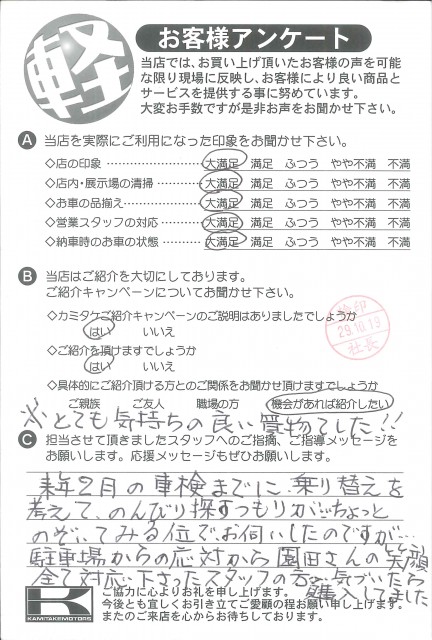 軽
お客様アンケート
当店では、お買い上げ頂いたお客様の声を可能
な限り現場に反映し、お客様により良い商品と
サービスを提供する事に努めています。
大変お手数ですが是非お声をお聞かせ下さい。
A 当店を実際にご利用になった印象をお聞かせ下さい。
◇店の印象 大満足 満足 ふつう やや不満 不満
◇店内・展示場の清掃 大満足 満足 ふつう やや不満 不満
◇お車の品揃え 大満足 満足 ふつう やや不満 不満
◇営業スタッフの対応 大満足 満足 ふつう やや不満 不満
◇納車時のお車の状態 大満足 満足 ふつう やや不満 不満
B 当店はご紹介を大切にしております。
ご紹介キャンペーンについてお聞かせ下さい。
◇カミタケご紹介キャンペーンのご説明はありましたでしょうか
はい いいえ
検印
29.10.19
社長
◇ご紹介を頂けますでしょうか
はい いいえ
◇具体的にご紹介頂ける方とのご関係をお聞かせ頂けますでしょうか
ご親族 ご友人 職場の方 機会があれば紹介したい
※とても気持ちの良い買物でした!!
C 担当させて頂きましたスタッフへのご指摘、ご指導メッセージを
お願いします。応援メッセージもぜひお願いします。
来年2月の車検までに乗り替えを
考えて、のんびり探すつもりが…ちょっと
のぞいてみる位で、お伺いしたのですが…
駐車場からの応対から園田さんの笑顔
全て対応下さったスタッフの方々、気づいたら
購入してました
K
KAMITAKEMOTORS
ご協力に心よりお礼を申し上げます。
今後とも宜しくお引き立てご愛顧の程お願い申し上げます。
またのご来店を心からお待ちしております。